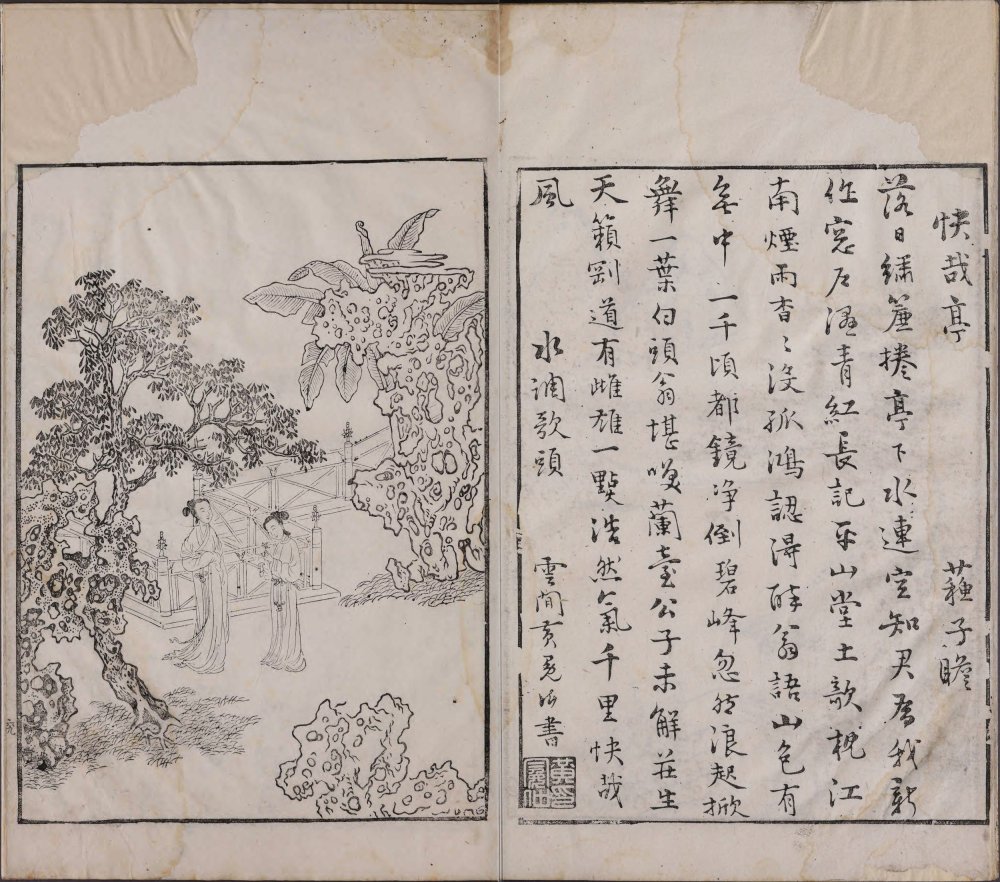 快哉亭　蘓子瞻
落日繡簾捲亭下水連空知君為我新
作窓戶濕青紅長記平山堂上欹枕江
南煙雨杳〻沒孤鴻認得醉翁語山色有
無中一千頃都鏡淨倒碧峰忽然浪起掀
舞一葉白頭翁堪笑蘭臺公子未解莊生
天籟剛道有雌雄一點浩然氣千里快哉
風　水調歌頭　雲間黃冕仲書
黃印冕仲